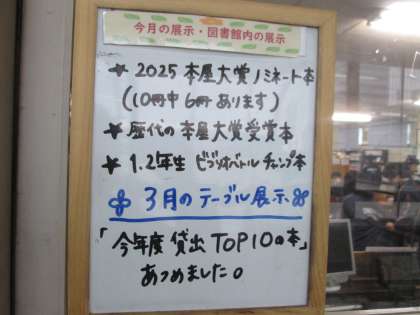 今月の展示・図書館内の展示
★ 2025 本屋大賞ノミネート本
(10冊中 6冊 あります)
★ 歴代の 本屋大賞受賞本
★ 1.2年生 ビブリオバトル チャンプ本
3月のテーブル展示
「今年度 貸出 TOP10の本」
あつめました。